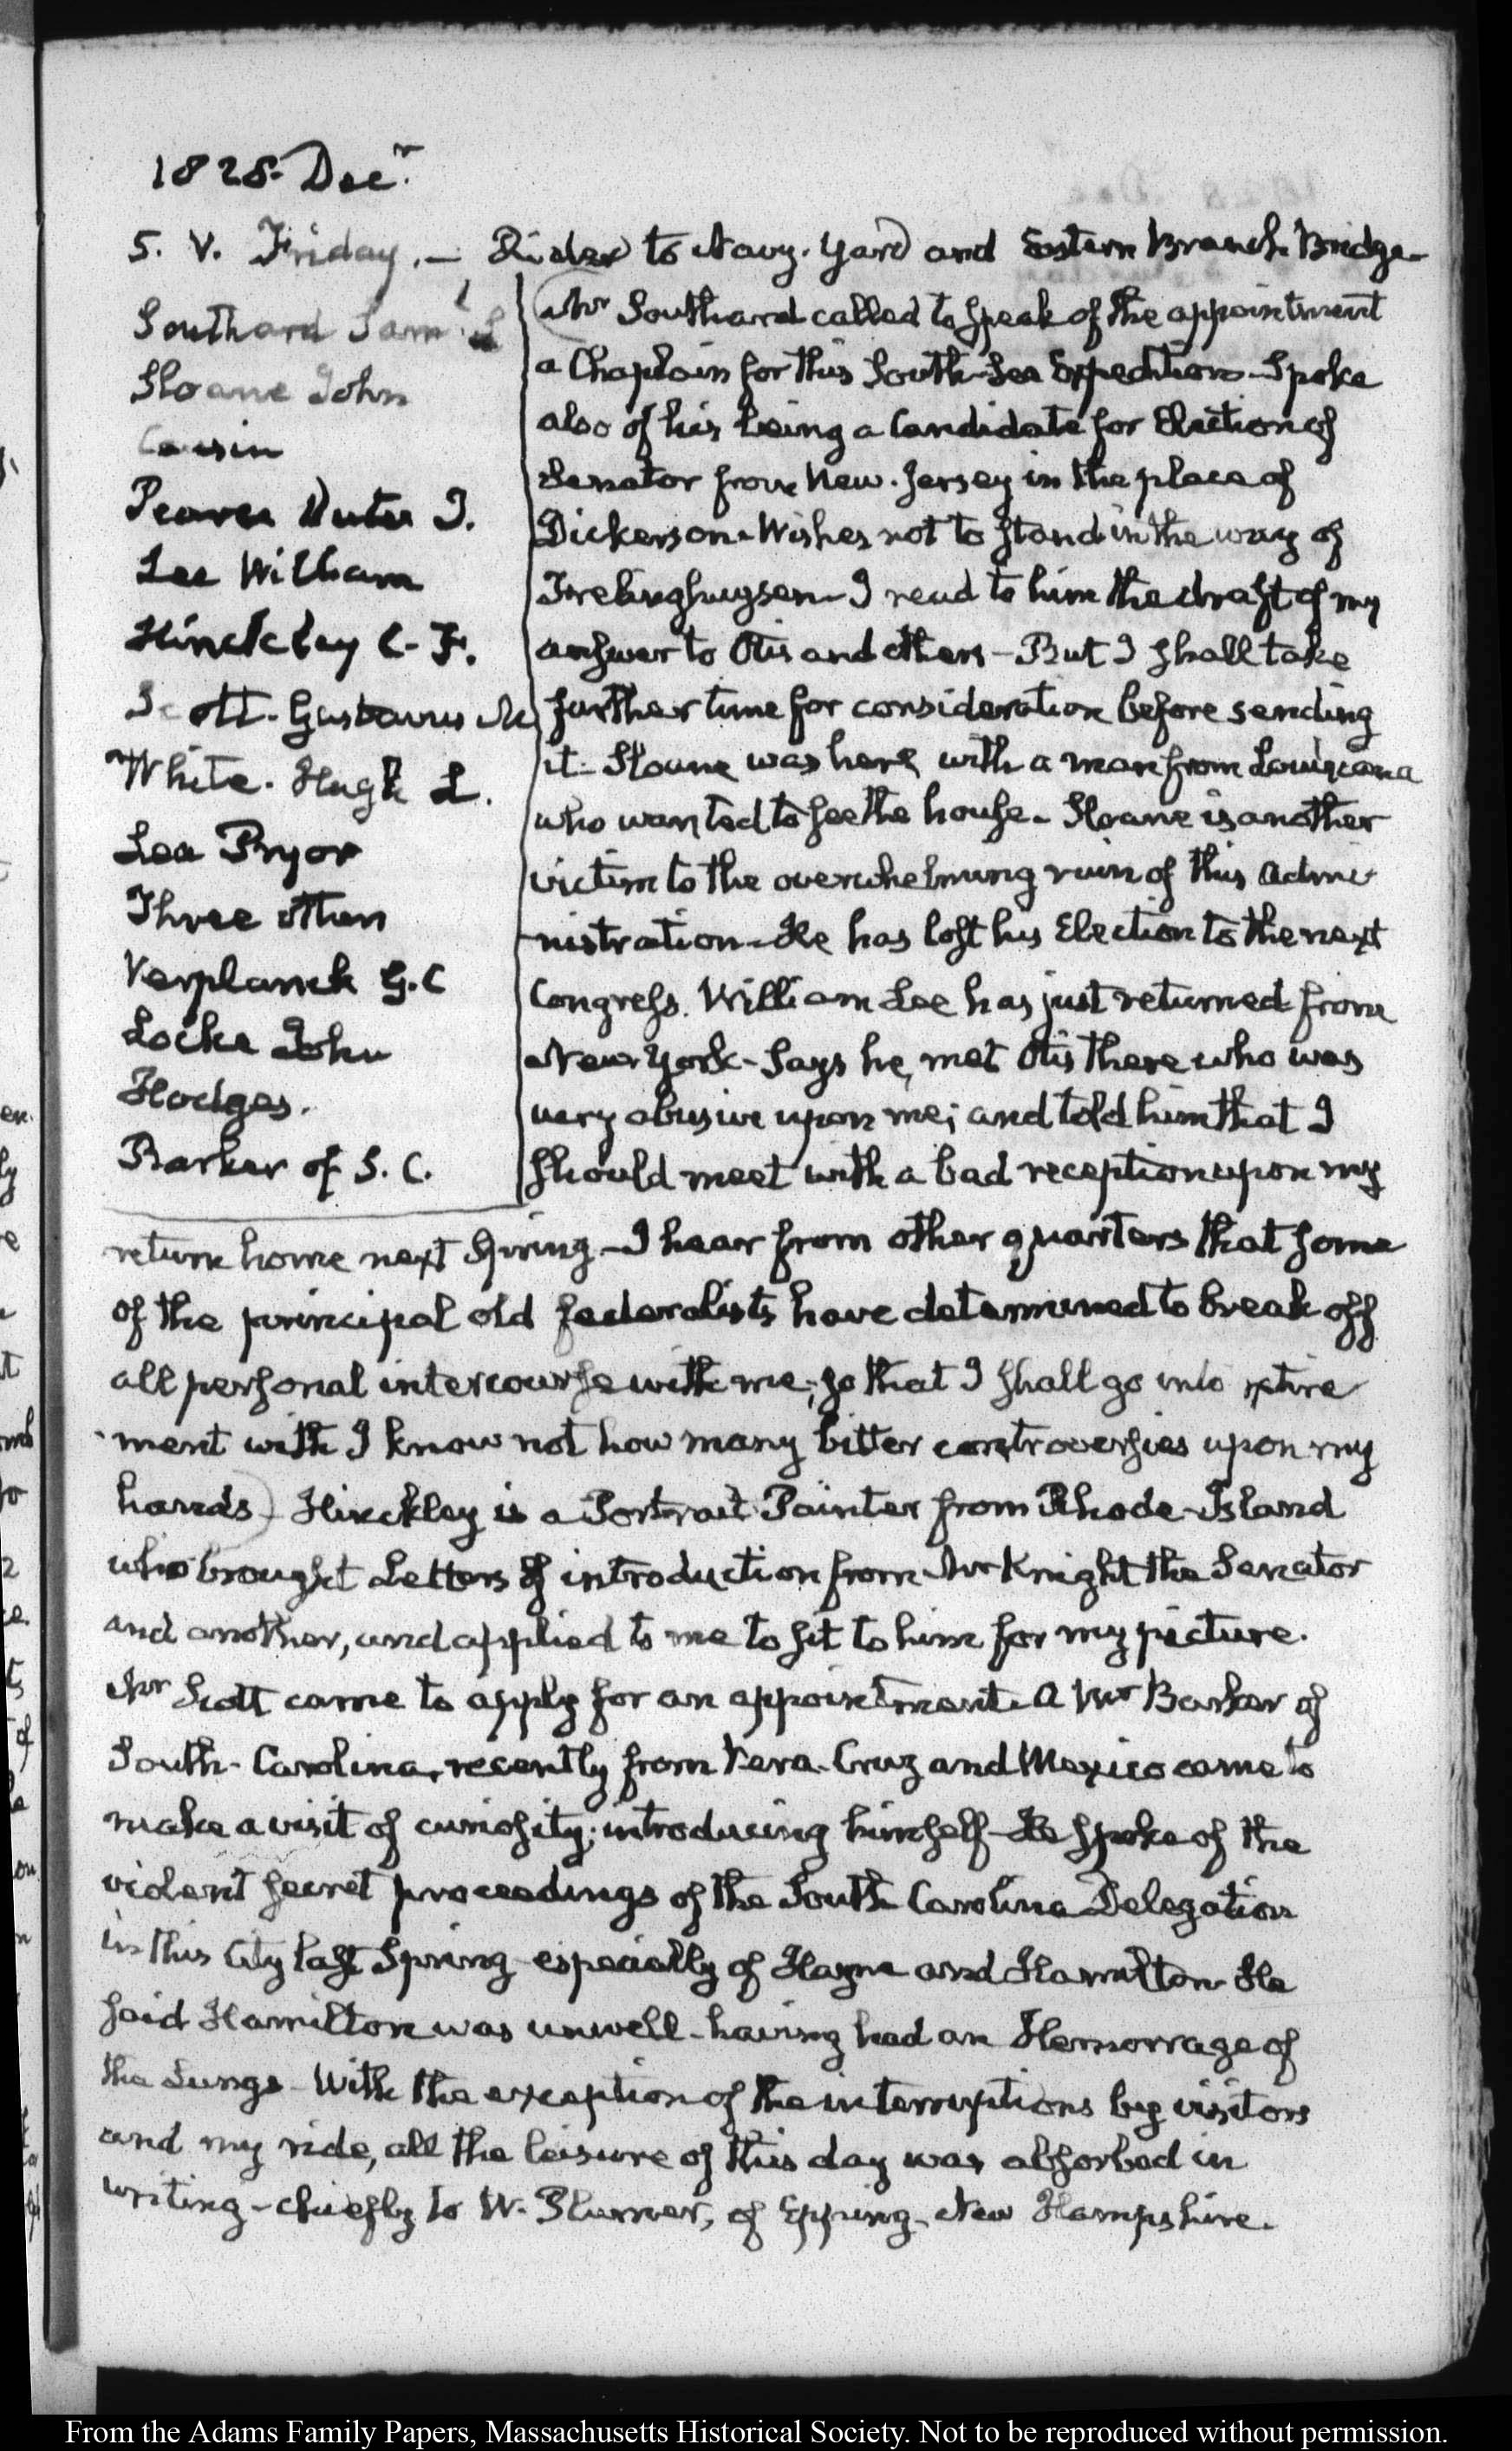 1828. Decr.
5. V. Friday. — Rides to Navy-Yard and Eastern Branch Bridge.
Southard Saml. L
Sloane John
Cousin
Pearce Dutee J.
Lee William
Hinckley C. F.
Scott. Gustavus M
White. Hugh L.
Lea Pryor
Three others
Verplanck G.C
Locke John
Hodges.
Barker of S. C.
Mr Southard called to speak of the appointment
a Chaplain for this South-Sea Expedition. Spoke
also of his being a Candidate for Election of
Senator from New-Jersey in the place of
Dickerson. Wishes not to stand in the way of
Frelinghuysen — I read to him the draft of my
answer to Otis and others — But I shall take
further time for consideration before sending
it. Sloane was here, with a man from Louisiana
who wanted to see the house. Sloane is another
victim to the overwhelming ruin of this Admi-
nistration. He has lost his Election to the next
Congress. William Lee has just returned from
New York — Says he, met Otis there who was
very abusive upon me; and told him that I
should meet with a bad reception upon my
return home next Spring — I hear from other quarters that some
of the principal old federalists have determined to break off
all personal intercourse with me; so that I shall go into retire-
ment with I know not how many bitter controversies upon my
hands) — Hinckley is a Portrait Painter from Rhode-Island
who brought Letters of introduction from Mr Knight the Senator
and another, and applied to me to sit to him for my picture.
Mr Scott came to apply for an appointment. A Mr Barker of
South-Carolina, recently from Vera-Cruz and Mexico came to
make a visit of curiosity; introducing himself — He spoke of the
violent secret proceedings of the South Carolina Delegation
in this City last Spring — especially of Hayne and Hamilton. He
said Hamilton was unwell — having had an Hemorrage of
the Lungs — With the exception of the interruptions by visitors
and my ride, all the leisure of this day was absorbed in
writing — chiefly to W. Plumer, of Epping, New Hampshire.
From the Adams Family Papers, Massachusetts Historical Society. Not to be reproduced without permission.